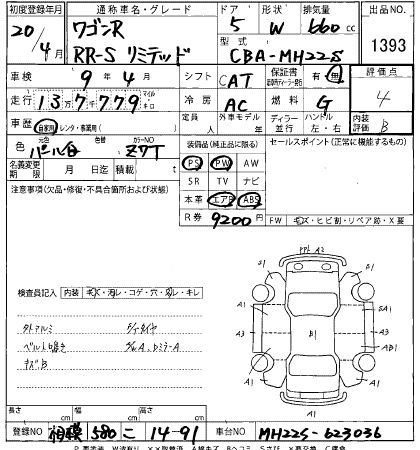 初度登録年月 通称車名・グレード ドア 形状 排気量 出品NO
20/4月 ワゴンR 5 W 660
RR-S リミテッド 型式 CBA-MH22S 1393
車検 9年4月 シフト CAT 保証書 有・無 評価点
走行 137,779 マイル キロ 冷房 AC 燃料 G 4
車歴 自家用・レンタ・事業用 定員 人 外車モデル 年 ディーラー 並行 ハンドル 左・右 内装評価 B
色 元色 パール白 色替 カラーNO Z7T 装備品(純正品に限る) セールスポイント(正常に機能するもの)
名義変更期限 月 日迄 積載 PS PW AW
注意事項(欠品・修復・不具合箇所および状態) SR TV ナビ
本革 エアB ABS
R券 9200円 FW キズ・ヒビ割・リペア跡・X要
検査員記入 内装 キズ・汚レ・コゲ・穴・キレ
外アルミ
キズB
A2
S1 B1
A1 SA1
A3 B1 A3
A1 AB1
A1 A1
長さ cm 幅 cm 高さ cm
登録NO 相模 580 こ 14-91 車台NO MH22S-623036